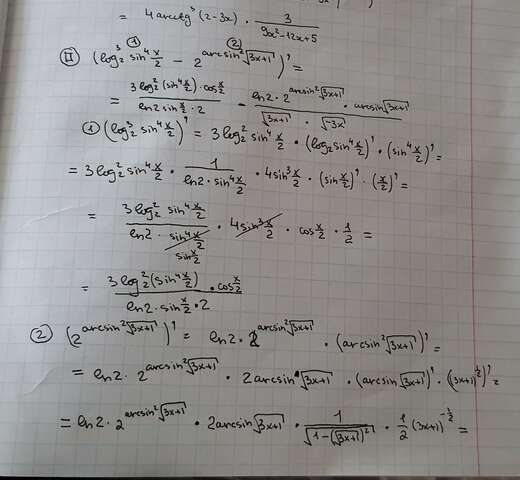 = 4 arcctg³(2-3x) · 3/(9x²-12x+5)
① ②
Ⅱ (log₂³ sin⁴ x/2 - 2^(arcsin²√(3x+1)))' =
= (3 log₂² (sin⁴ x/2) · cos x/2)/(ln2 sin x/2 · 2) - (ln2 · 2^(arcsin²√(3x+1)) · arcsin√(3x+1))/(√(3x+1) · √(-3x))
① (log₂³ sin⁴ x/2)' = 3 log₂² sin⁴ x/2 · (log₂ sin⁴ x/2)' · (sin⁴ x/2)' =
= 3 log₂² sin⁴ x/2 · 1/(ln2 · sin⁴ x/2) · 4 sin³ x/2 · (sin x/2)' · (x/2)' =
= (3 log₂² sin⁴ x/2)/(ln2 · sin⁴ x/2) · 4 sin³ x/2 · cos x/2 · 1/2 =
sin x/2
= (3 log₂² (sin⁴ x/2) · cos x/2)/(ln2 · sin x/2 · 2)
② (2^(arcsin²√(3x+1)))' = ln2 · 2^(arcsin²√(3x+1)) · (arcsin²√(3x+1))' =
= ln2 · 2^(arcsin²√(3x+1)) · 2arcsin√(3x+1) · (arcsin√(3x+1))' · ((3x+1)^(1/2))' =
= ln2 · 2^(arcsin²√(3x+1)) · 2arcsin√(3x+1) · 1/√(1-(√(3x+1))²) · 1/2 (3x+1)^(-1/2) =